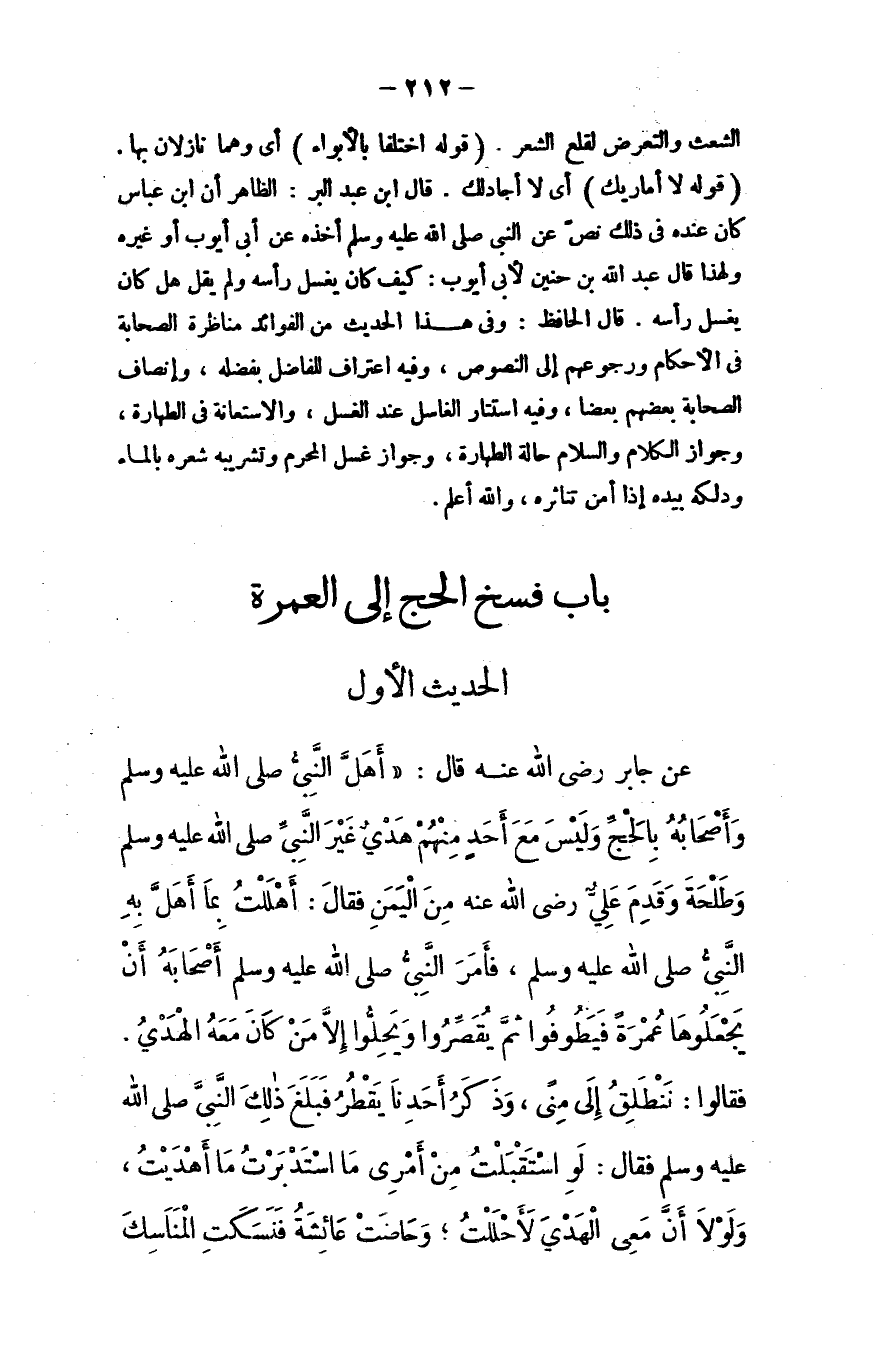 — ٢١٢ —
الشعث والتعرض لقلع الشعر . ( قوله اختلفا بالأبواء ) أى وهما نازلان بها .
( قوله لا أماريك ) أى لا أجادلك . قال ابن عبد البر : الظاهر أن ابن عباس
كان عنده فى ذلك نصّ عن النبي صلى الله عليه وسلم أخذه عن أبى أيوب أو غيره
ولهذا قال عبد الله بن حنين لأبى أيوب : كيف كان يغسل رأسه ولم يقل هل كان
يغسل رأسه . قال الحافظ : وفى هـذا الحديث من الفوائد مناظرة الصحابة
فى الأحكام ورجوعهم إلى النصوص ، وفيه اعتراف للفاضل بفضله ، وإنصاف
الصحابة بعضهم بعضا ، وفيه استتار الغاسل عند الغسل ، والاستعانة فى الطهارة ،
وجواز الكلام والسلام حالة الطهارة ، وجواز غسل المحرم وتشريبه شعره بالماء
ودلكه بيده إذا أمن تناثره ، والله أعلم .
باب فسخ الحج إلى العمرة
الحديث الأول
عن جابر رضى الله عنـه قال : « أَهَلَّ النَّبِيُّ صلى الله عليه وسلم
وَأَصْحَابُهُ بِالْحَجِّ وَلَيْسَ مَعَ أَحَدٍ مِنْهُمْ هَدْيٌ غَيْرَ النَّبِيِّ صلى الله عليه وسلم
وَطَلْحَةَ وَقَدِمَ عَلِيٌّ رضى الله عنه مِنَ الْيَمَنِ فقالَ : أَهْلَلْتُ بِمَا أَهَلَّ بِهِ
النَّبِيُّ صلى الله عليه وسلم ، فأَمَرَ النَّبِيُّ صلى الله عليه وسلم أَصْحَابَهُ أَنْ
يَجْعَلُوهَا عُمْرَةً فَيَطُوفُوا ثمَّ يُقَصِّرُوا وَيَحِلُّوا إِلاَّ مَنْ كَانَ مَعَهُ الْهَدْيُ .
فقالوا : نَنْطَلِقُ إِلَى مِنًى ، وَذَكَرُ أَحَدِنَا يَقْطُرُ فَبَلَغَ ذٰلِكَ النَّبِيَّ صلى الله
عليه وسلم فقال : لَوِ اسْتَقْبَلْتُ مِنْ أَمْرِى مَا اسْتَدْبَرْتُ مَا أَهْدَيْتُ ،
وَلَوْلاَ أَنَّ مَعِى الْهَدْيَ لَأَحْلَلْتُ ؛ وَحَاضَتْ عَائِشَةُ فَنَسَكَتِ الْمَنَاسِكَ